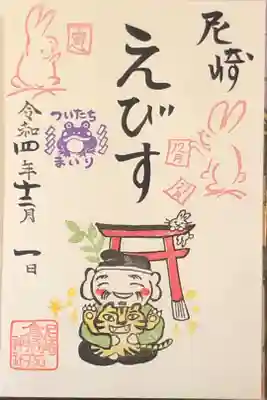 尼崎
えびす
寅
12月
卯
ついたち
まいり
令和四年十二月一日